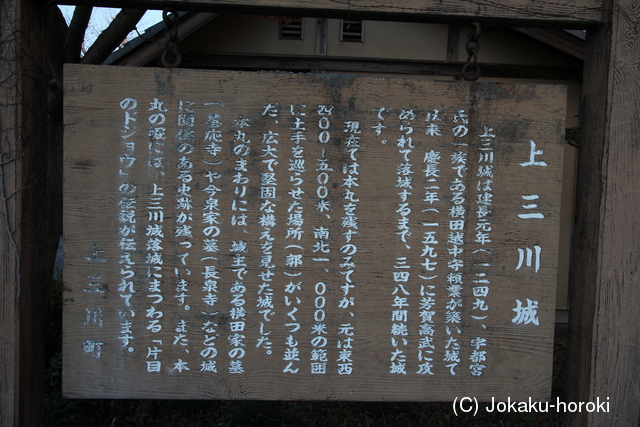 上三川城
上三川城は建長元年（一二四九）、宇都宮
氏の一族である横田越中守頼業が築いた城で
以来、慶長二年（一五九七）に芳賀高武に攻
められて落城するまで、三四八年間続いた城
です。
現在では本丸を残すのみですが、元は東西
400〜500米、南北一、000米の範囲
に土手を巡らせた場所（郭）がいくつも並ん
だ、広大で堅固な構えを見せた城でした。
本丸のまわりには、城主である横田家の墓
（善応寺）や今泉家の墓（長泉寺）などの城
に関係のある史跡が残っています。また、本
丸の堀には、上三川城落城にまつわる「片目
のドジョウ」の伝説が伝えられています。
上三川町
(C) Jokaku-horoki